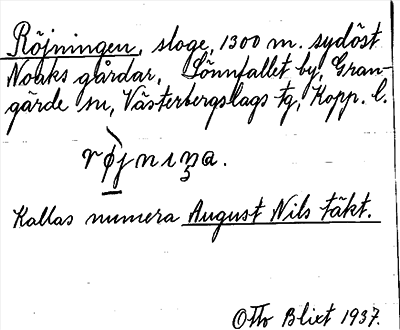 Röjningen, sloge, 1300 m. sydöst
Noaks gårdar, Lönnfallet by, Gran-
gärde sn, Västerbergslags tg, Kopp. l.
Kallas numera August Nils täkt.
Otto Blixt 1937.